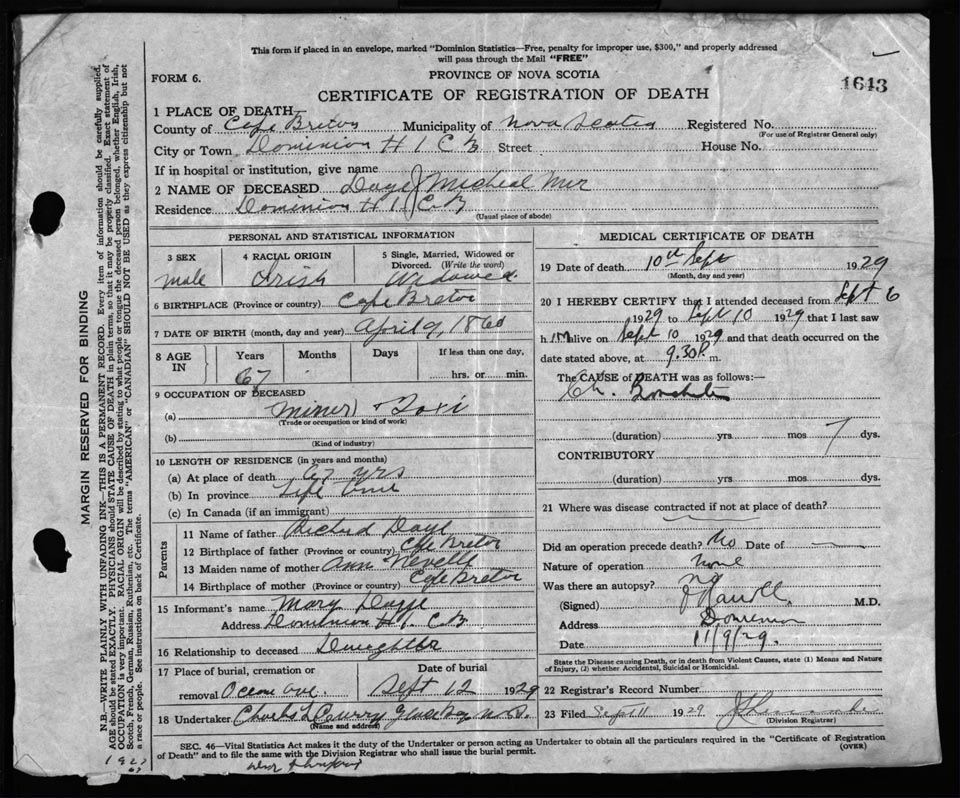 This form if placed in an envelope, marked "Dominion Statistics—Free, penalty for improper use, $300," and properly addressed
will pass through the Mail "FREE"
FORM 6.
PROVINCE OF NOVA SCOTIA
1643
CERTIFICATE OF REGISTRATION OF DEATH
1 PLACE OF DEATH
County of Cape Breton Municipality of Nova Scotia Registered No.
(For use of Registrar General only)
City or Town Dominion # 1 C B Street House No.
If in hospital or institution, give name
2 NAME OF DECEASED Micheal
Residence Dominion # 1. C. B
(Usual place of abode)
PERSONAL AND STATISTICAL INFORMATION
3 SEX
male
4 RACIAL ORIGIN
Irish
5 Single, Married, Widowed or
Divorced. (Write the word)
Widowed
6 BIRTHPLACE (Province or country) Cape Breton
7 DATE OF BIRTH (month, day and year) April 9, 1860
8 AGE
IN
Years
67
Months
Days
If less than one day,
hrs. or min.
9 OCCUPATION OF DECEASED
(a) Miner
(Trade or occupation or kind of work)
(b)
(Kind of industry)
10 LENGTH OF RESIDENCE (in years and months)
(a) At place of death 67 yrs
(b) In province Life time
(c) In Canada (if an immigrant)
Parents
11 Name of father Richard
12 Birthplace of father (Province or country) Cape Breton
13 Maiden name of mother Ann
14 Birthplace of mother (Province or country) Cape Breton
15 Informant's name Mary
Address Dominion # 1. C. B.
16 Relationship to deceased Daughter
17 Place of burial, cremation or
removal Ocean Ave.
Date of burial
Sept 12 1929
18 Undertaker Charles Curry Glace Bay N. S.
(Name and address)
MEDICAL CERTIFICATE OF DEATH
19 Date of death 10th Sept 1929
(Month, day and year)
20 I HEREBY CERTIFY that I attended deceased from Sept 6
1929 to Sept 10 1929 that I last saw
h im alive on Sept 10 1929 and that death occurred on the
date stated above, at 9.30 P. m.
The CAUSE of DEATH was as follows:—
Ch. Bronchitis
(duration) yrs mos 7 dys.
CONTRIBUTORY
(duration) yrs. mos. dys.
21 Where was disease contracted if not at place of death?
Did an operation precede death? No Date of
Nature of operation None
Was there an autopsy? no
(Signed) M.D.
Address Dominion
Date 11/9/29.
State the Disease causing Death, or in death from Violent Causes, state (1) Means and Nature
of Injury, (2) whether Accidental, Suicidal or Homicidal.
22 Registrar's Record Number
23 Filed Sept 11 1929
(Division Registrar)
SEC. 46—Vital Statistics Act makes it the duty of the Undertaker or person acting as Undertaker to obtain all the particulars required in the "Certificate of Registration
of Death" and to file the same with the Division Registrar who shall issue the burial permit.
(OVER)
MARGIN RESERVED FOR BINDING
N.B.—WRITE PLAINLY WITH UNFADING INK—THIS IS A PERMANENT RECORD. Every item of information should be carefully supplied.
AGE should be stated EXACTLY. PHYSICIANS should STATE CAUSE OF DEATH in plain terms, so that it may be properly classified. Exact statement of
OCCUPATION is very important. RACIAL ORIGIN will be described by stating to what people or tongue the deceased person belonged, whether English, Irish,
Scotch, French, German, Russian, Ruthenian, etc. The terms "AMERICAN" or "CANADIAN" SHOULD NOT BE USED as they express citizenship but not
a race or people. See instructions on back of Certificate.